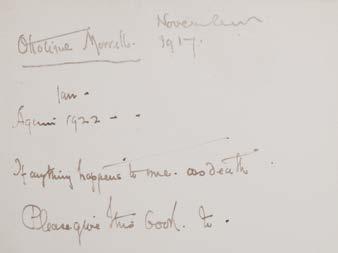 Ottoline Morrell. November
1917.
Jan -
Again 1922 - -
If anything happens to me. as death
Please give this book. to .